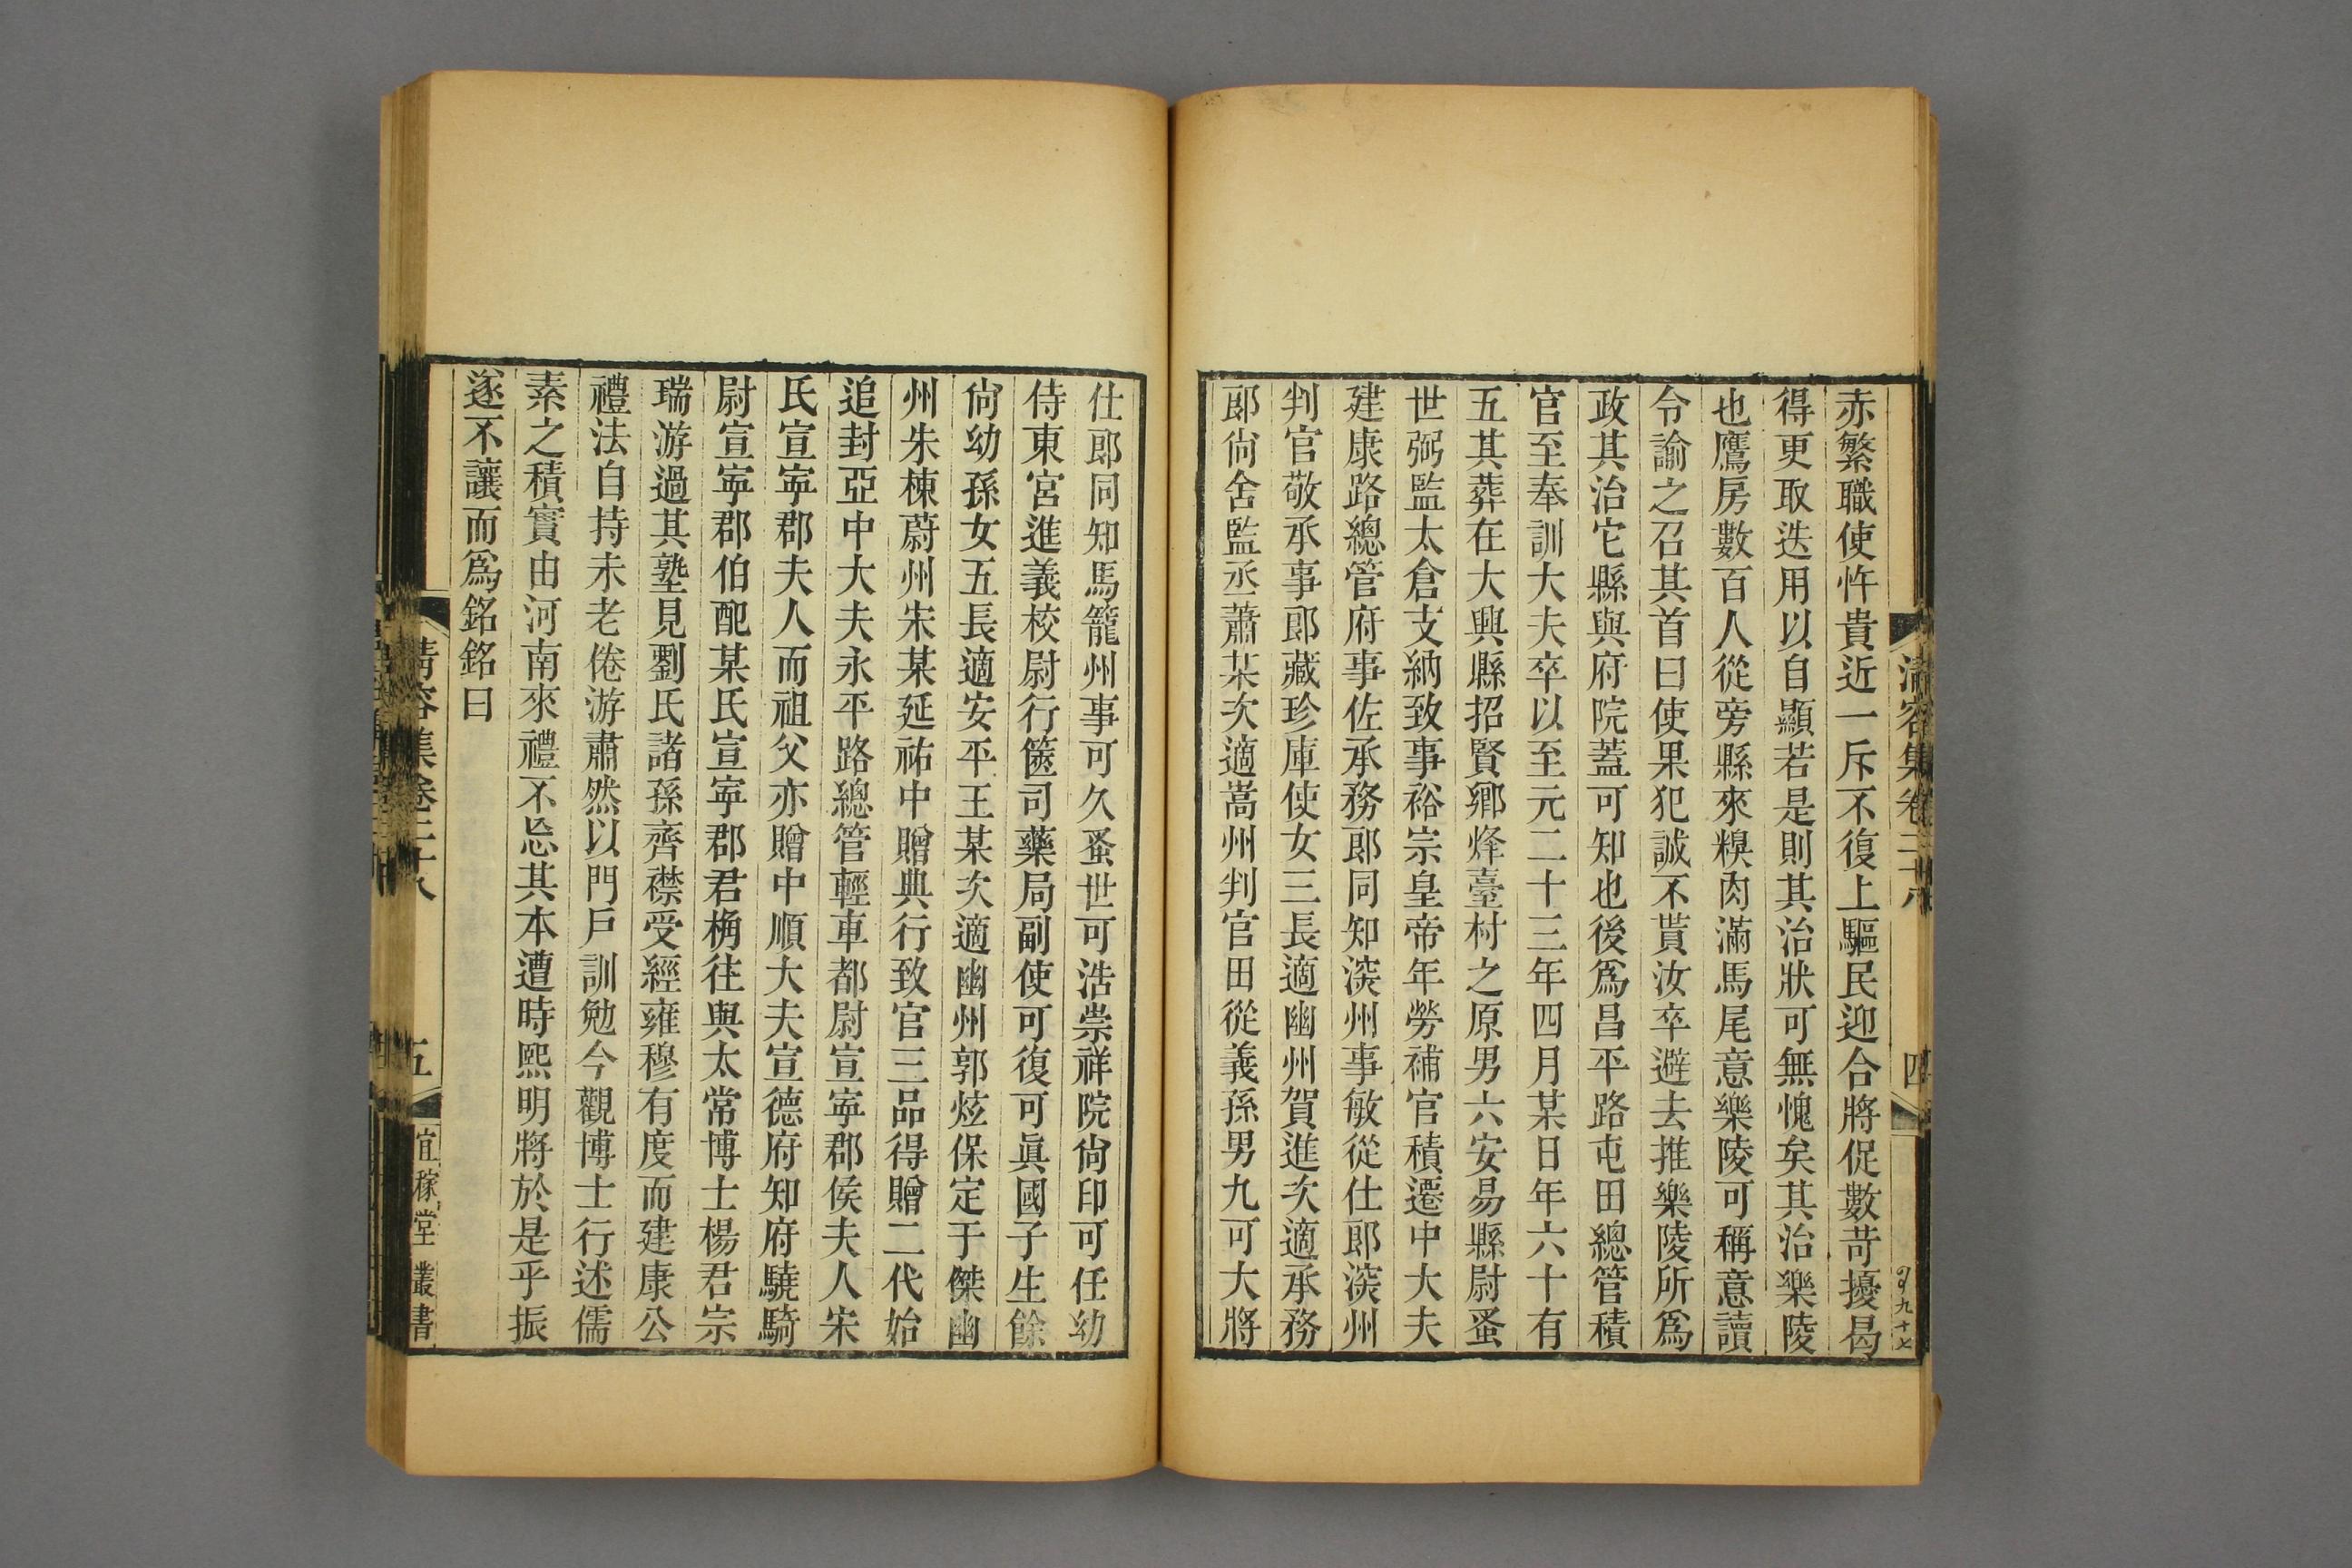 赤繁職使忤貴近一斥不復上驅民迎合將促數苛擾曷
得更取迭用以自顯若是則其治狀可無愧矣其治樂陵
也鷹房數百人從旁縣來糗肉滿馬尾意樂陵可稱意讀
令諭之召其首曰使果犯誠不貰汝卒避去推樂陵所爲
政其治它縣與府院蓋可知也後爲昌平路屯田總管積
官至奉訓大夫卒以至元二十三年四月某日年六十有
五其葬在大興縣招賢鄉烽臺村之原男六安易縣尉蚤
世弼監太倉支納致事裕宗皇帝年勞補官積遷中大夫
建康路總管府事佐承務郎同知滦州事敏從仕郎滦州
判官敬承事郎藏珍庫使女三長適幽州賀進次適承務
郎尙舍監丞蕭某次適嵩州判官田從義孫男九可大將
清容集卷二十八
四
九十七
仕郎同知馬籠州事可久蚤世可浩崇祥院尙印可任幼
侍東宮進義校尉行篋司藥局副使可復可眞國子生餘
尙幼孫女五長適安平王某次適幽州郭炫保定于傑幽
州朱棟蔚州宋某延祐中贈典行致官三品得贈二代始
追封亞中大夫永平路總管輕車都尉宣寧郡侯夫人宋
氏宣寧郡夫人而祖父亦贈中順大夫宣德府知府驍騎
尉宣寧郡伯配某氏宣寧郡君桷往與太常博士楊君宗
瑞游過其塾見劉氏諸孫齊襟受經雍穆有度而建康公
禮法自持未老倦游肅然以門戶訓勉今觀博士行述儒
素之積實由河南來禮不忘其本遭時熙明將於是乎振
遂不讓而爲銘銘曰
清容集卷二十八
五
宜稼堂叢書